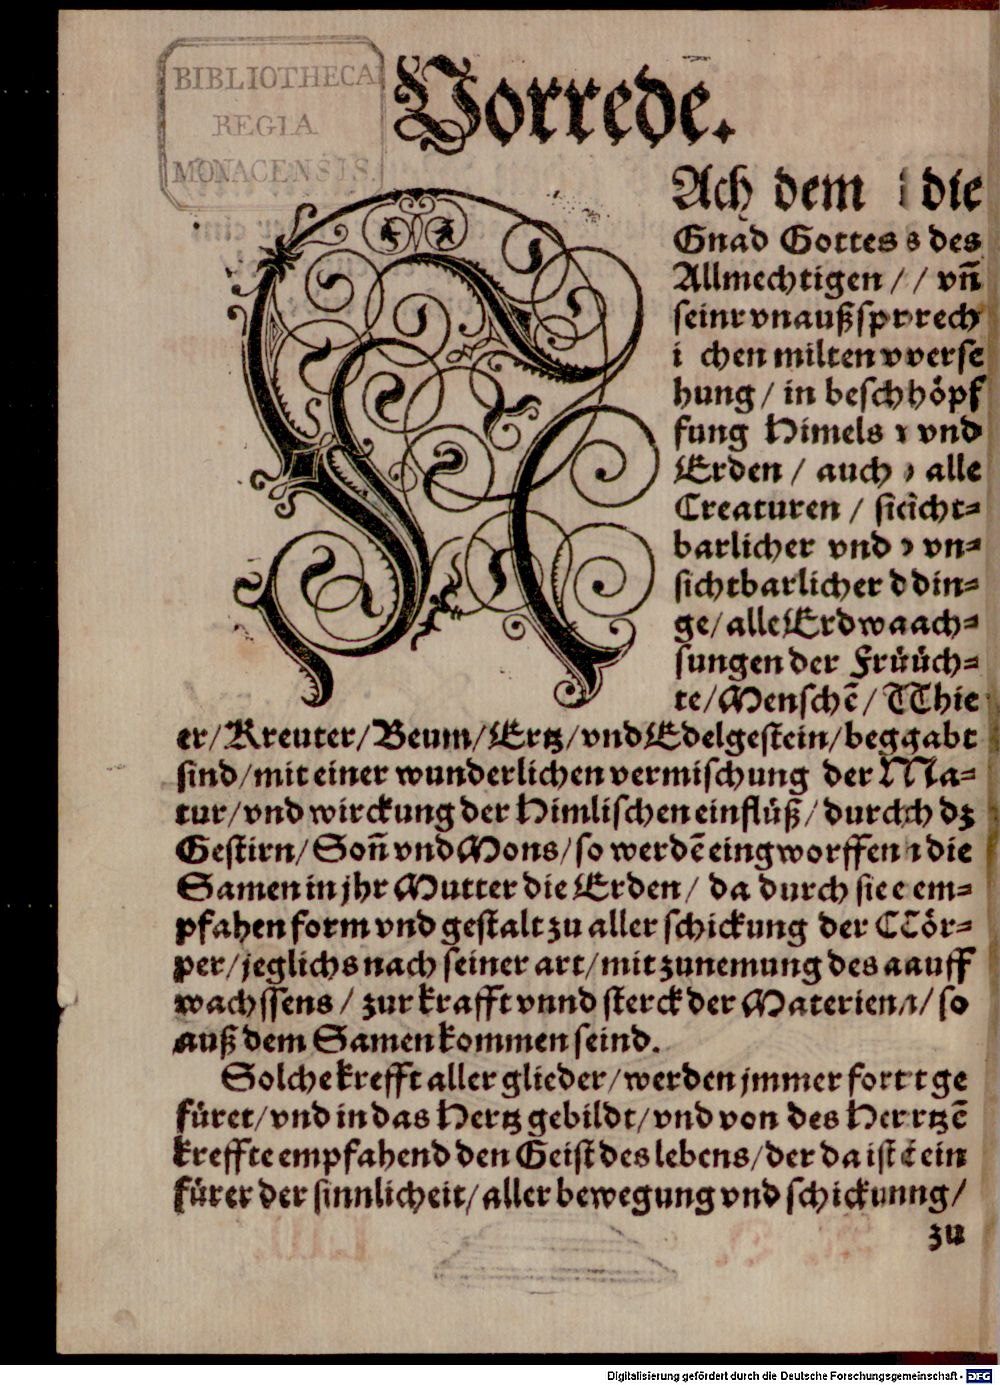 BIBLIOTHECA
REGIA
MONACENSIS.
Vorrede.
NAch dem die
Gnad Gottes s des
Allmechtigen / / vñ
seinr vnaußsprrech
i chen milten vverse
hung / in beschhöpf
fung Himels r vnd
Erden / auch alle
Creaturen / sicicht⸗
barlicher vnd vn⸗
sichtbarlicher d din⸗
ge / alle Erdwaach⸗
sungen der Früüch⸗
te / Menschē / TThie
er / Kreuter / Beum / Ertz / vnd Edelgestein / beggabt
sind / mit einer wunderlichen vermischung der Na⸗
tur / vnd wirckung der Himlischen einflüß / durchch dz
Gestirn / Soñ vnd Mons / so werdē eingworffen die
Samen in jhr Mutter die Erden / da durch sie e em⸗
pfahen form vnd gestalt zu aller schickung der CCör⸗
per / jeglichs nach seiner art / mit zunemung des aauff
wachssens / zur krafft vnnd sterck der Materien / so
auß dem Samen kommen seind.
Solche krefft aller glieder / werden jmmer fort t ge
füret / vnd in das Hertz gebildt / vnd von des Herrtzē
kreffte empfahend den Geist des lebens / der da ist ein
fürer der sinnlicheit / aller bewegung vnd schickunng /
zu
Digitalisierung gefördert durch die Deutsche Forschungsgemeinschaft - DFG